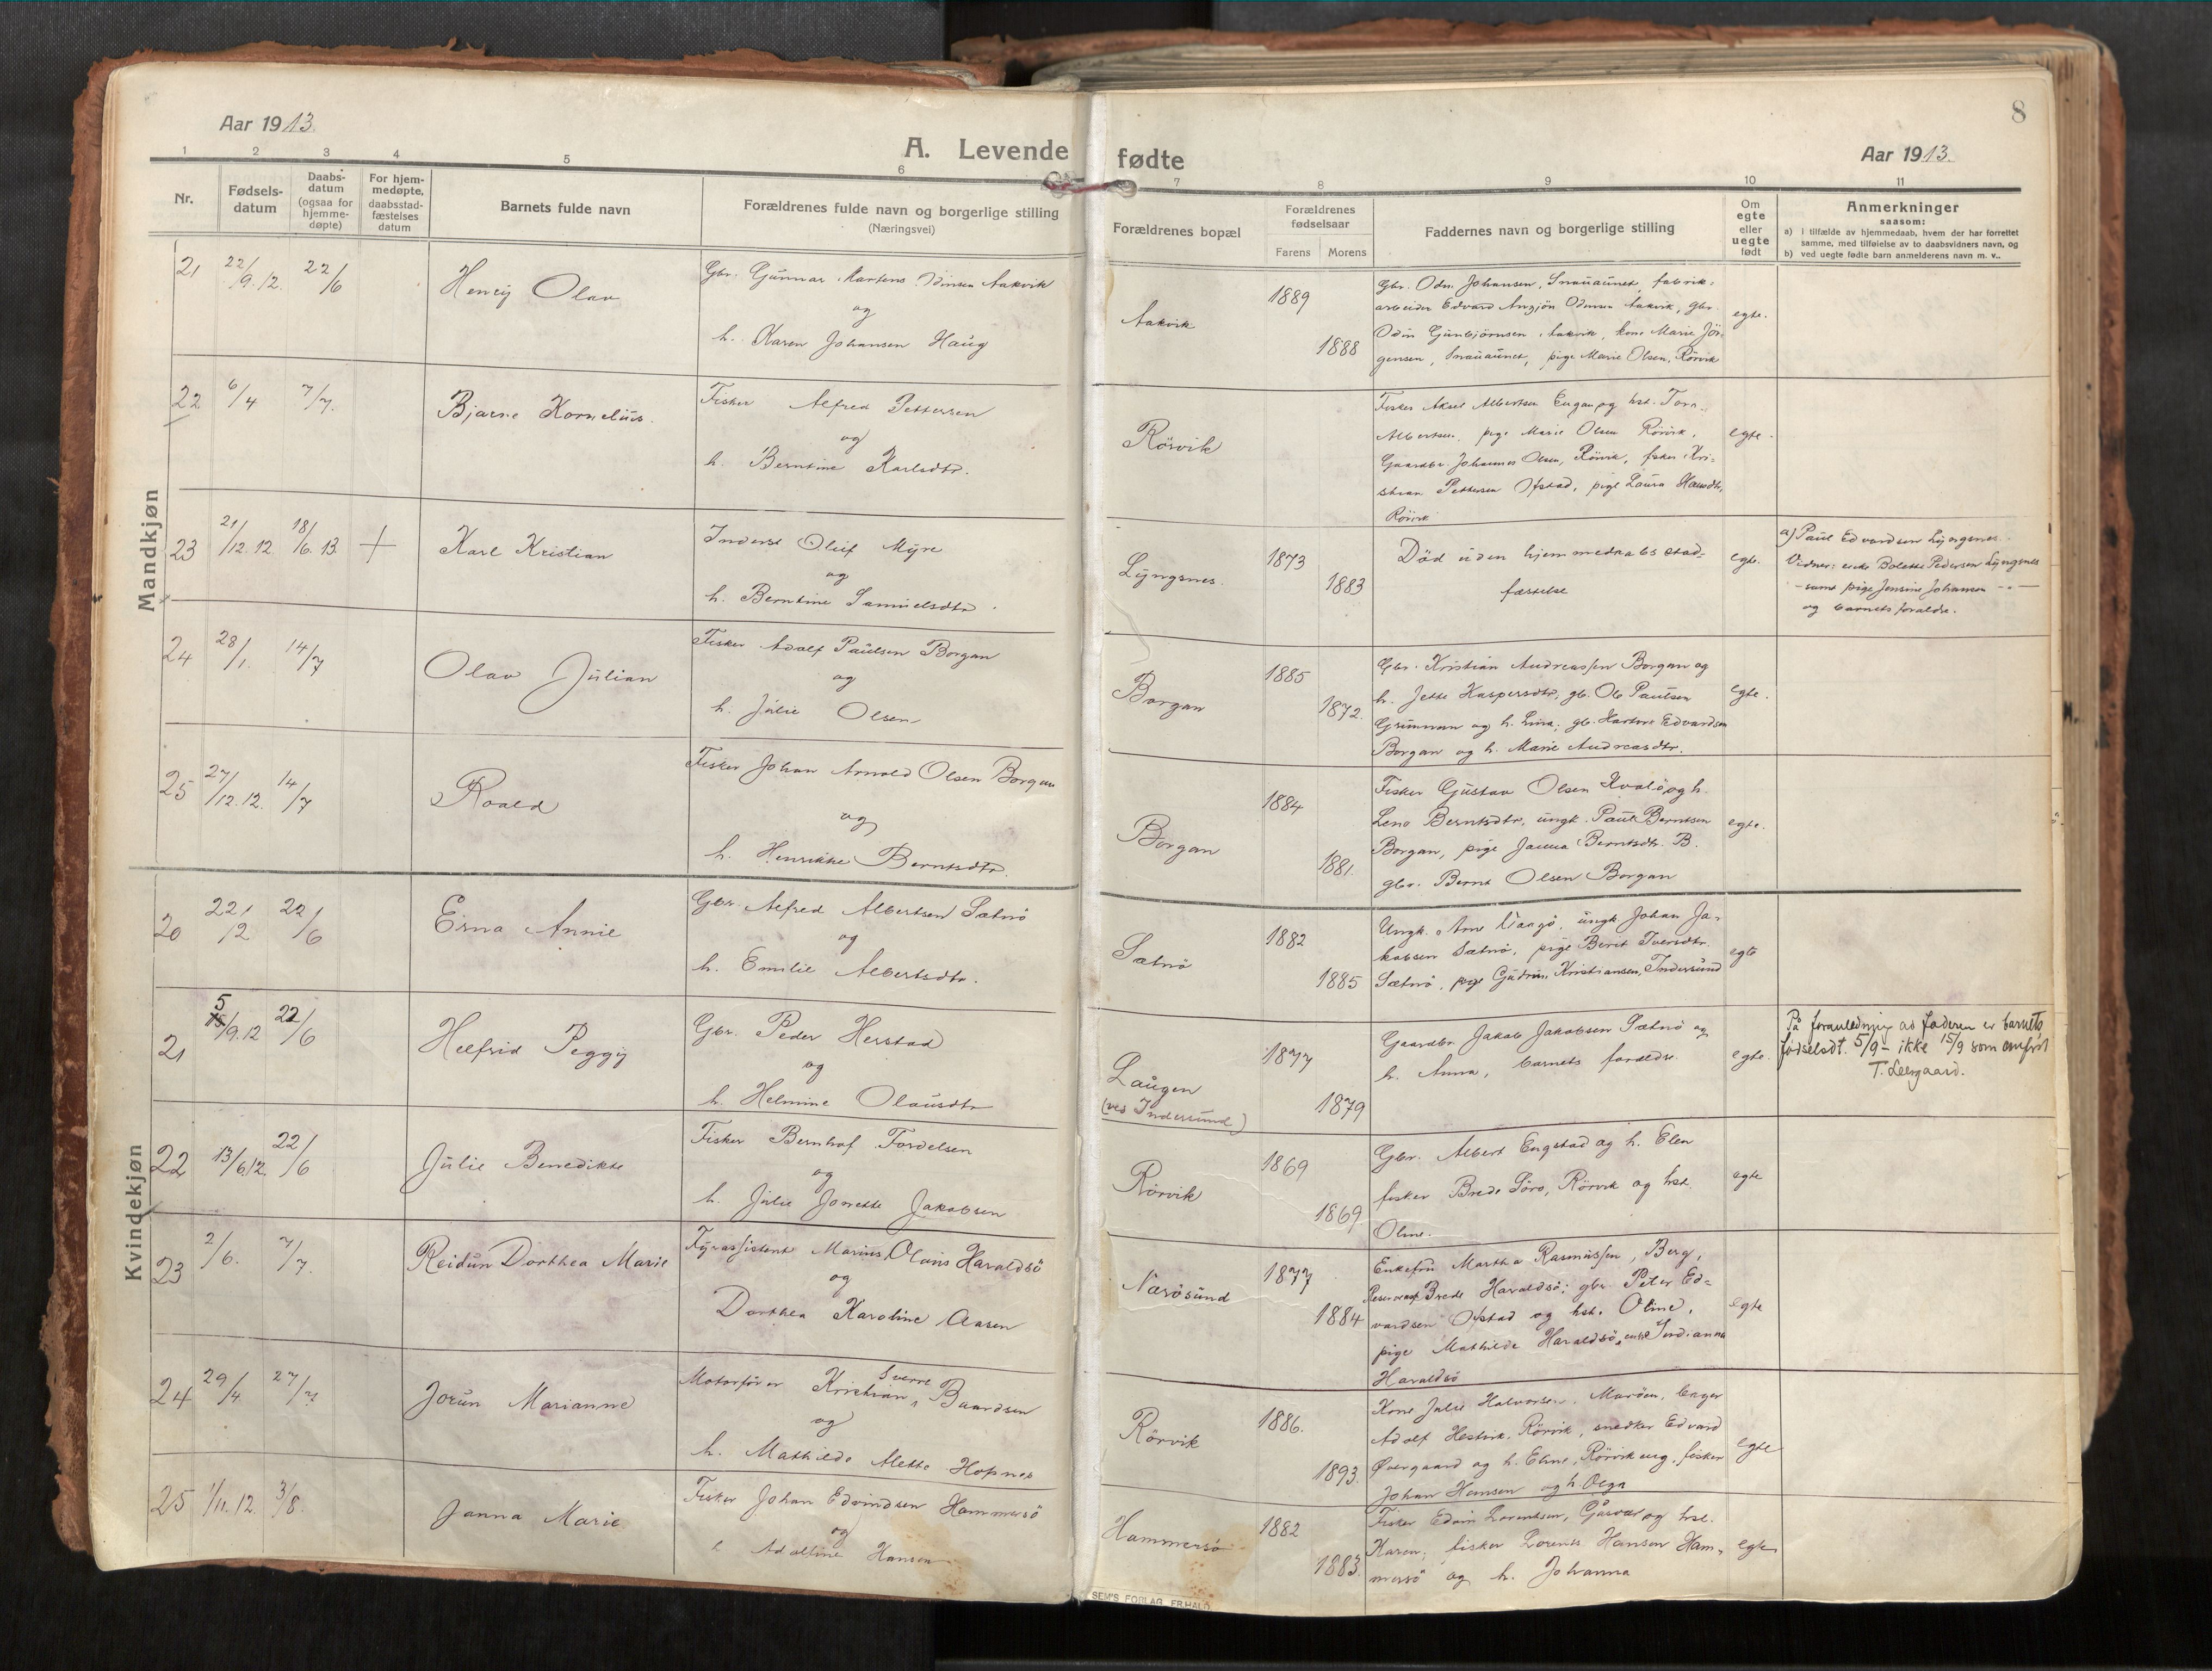 8
Aar 1913.
A. Levende fødte
Aar 1913.
1 2 3 4 5 6 7 8 9 10 11
Nr.
Fødsels-
datum
Daabs-
datum
(ogsaa for
hjemme-
døpte)
For hjem-
medøpte,
daabsstad-
fæstelses
datum
Barnets fulde navn
Forældrenes fulde navn og borgerlige stilling
(Næringsvei)
Forældrenes bopæl
Forældrenes
fødselsaar
Farens Morens
Faddernes navn og borgerlige stilling
Om
egte
eller
uegte
født
Anmerkninger
saasom:
a) i tilfælde av hjemmedaab, hvem der har forrettet
samme, med tilføielse av to daabsvidners navn, og
b) ved uegte fødte barn anmelderens navn m. v..
Mandkjøn
21 22/9.12. 22/6 Henry Olav
Gbr. Gunnar Martens Odinsen Aakvik
og
h. Karen Johansen Haug
Aakvik 1889 1888
Gbr. Odin Johansen, Snauaunet, fabrik-
arbeider Edvard Odinsen Aakvik, gbr.
Odin Gunbjørnsen Aakvik, kone Marie Jör-
gensen, Snauaunet, pige Marie Olsen, Rörvik
egte.
22 6/4 7/7. Bjarne Kornelius.
Fisker Alfred Pettersen
og
h. Berntine Karlsdtr.
Rörvik
Fisker Aksel Albertsen Engan og hst. Tora
Albertsen, pige Marie Olsen Rörvik,
Gaardbr. Johannes Olsen, Rörvik, fisker Kri-
stian Pettersen Ofstad, pige Laura Hansdtr,
Rörvik
egte.
23 21/12.12 18/6.13 + Karl Kristian
Inderst Oluf Myre
og
h. Berntine Samuelsdtr.
Lyngsnes. 1873 1883
Död uden hjemmedaabsstad-
fæstelse
egte.
a) Paul Edvardsen Lyngsnes.
Vidner: enke Bolette Pedersen Lyngsnes
- samt pige Jensine Johansen - " -
og barnets foraldre.
24 28/1. 14/7 Olav Julian
Fisker Adolf Paulsen Borgan
og
h. Julie Olsen
Borgan 1885 1872.
Gbr. Kristian Andreassen Borgan og
h. Jette Kaspersdtr, gb. Ole Paulsen
Grunnan og h. Lina, gb. Edvardsen
Borgan og h. Marie Andreasdtr.
egte.
25 27/12.12. 14/7 Roald
Fisker Johan Arnold Olsen Borgan
og
h. Henrikke Berntsdtr.
Borgan 1884 1881.
Fisker Gustav Olsen Kvalö og h.
Lena Berntsdtr, ungk. Paul Berntsen
Borgan, pige Janna Berntsdtr. B.
gbr. Bernt Olsen Borgan
egte.
Kvindekjøn
20 22/12 22/6 Erna Annie
Gbr. Alfred Albertsen Sætnö
og
h. Emilie Albertsdtr.
Sætnö 1882 1885
Ungk. Arne Vaagö, ungk Johan Ja-
kobsen Sætnö, pige Berit Iversdtr.
Sætnö, pige Gudrun Kristiansen, Indersund
egte
21 5/9.12 22/6 Helfrid Peggy
Gbr. Peder Herstad
og
h. Helmine Olausdtr
Laugen
(ved Indersund) 1877 1879
Gaardbr. Jakob Jakobsen Sætnö og
h. Anna, barnets foraldre.
egte.
På foranledning av faderen er barnets
fødselsdt. 5/9 - ikke 15/9 som anført
T. Leergaard.
22 13/6.12 22/6 Julie Benedikte
Fisker Bernhof Fordelsen
og
h. Julie Jonette Jakobsen
Rörvik 1869 1869
Gbr. Albert Engstad og h. Elen
fisker Brede Sörö, Rörvik og hst.
Oline.
egte
23 2/6. 7/7. Reidun Dorthea Marie
Fyrassistent Marius Olaus Haraldsö
og
Dorthea Karoline Aasen
Nærösund 1877 1884
Enkefru Martha Rasmussen, Berg,
Brede Haraldsö; gbr. Peter Ed-
vardsen Ofstad og hst. Oline,
pige Mathilde Haraldsö, enke Indianna
Haraldsö
egte
24 29/4 27/7 Jorun Marianne
Motorförer Kristian Sverre Baardsen
og
h. Mathilde Alette Hopnes
Rörvik 1886. 1893.
Kone Julie Halvorsen, Muröen, bager
Adolf Hestvik, Rörvik, snedker Edvard
Övergaard og h. Eline, Rörvik og fisker
Johan Hansen og h. Olga
egte
25 1/11.12. 3/8. Janna Marie
Fisker Johan Edvindsen Hammersö
og
h Adolfine Hansen
Hammersö 1882 1883.
Fisker Edvin Lorentsen, Gåsvær og hst.
Karen; fisker Lorents Hansen Ham-
mersö og h. Johanna
egte
SEM'S FORLAG FR.HALD